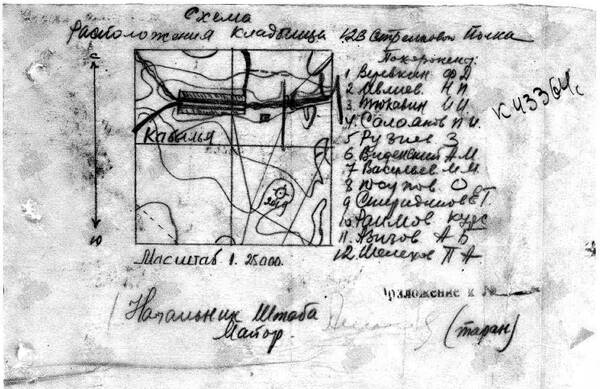 Схема
Расположения кладбища 123 Стрелкового Полка
Похоронены:
1 Веревкин Ф Д
2 Ивлиев Н П
3 Тюкавин И И
4 Салоянов П И.
5 Рузиев З
6 Виденский А М
7 Васильев М М
8 Юсупов О
9 Спиридонов Е Г.
10 Раимов Курб
11. Азизов А Б
12 Шелехов П А
К 43364с
С
Ю
Кабылья
Масштаб 1. 25000.
Приложение к №
Начальник Штаба
Майор.
(Таран)